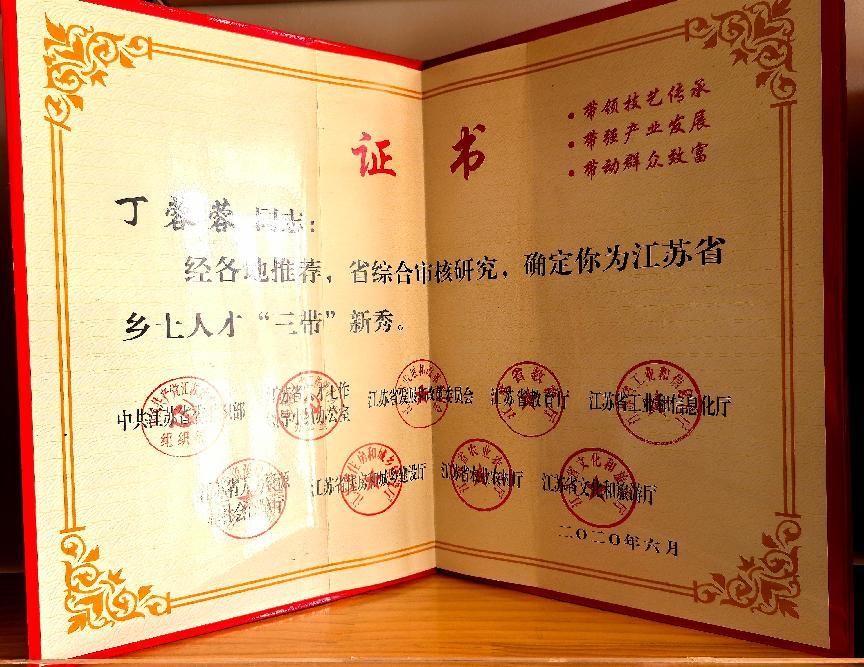 证 书
• 带领技艺传承
• 带强产业发展
• 带动群众致富
丁蓉蓉 同志：
经各地推荐，省综合审核研究，确定你为江苏省
乡土人才“三带”新秀。
中共江苏省委组织部 江苏省人才工作领导小组办公室 江苏省发展和改革委员会 江苏省教育厅 江苏省工业和信息化厅
江苏省人力资源和社会保障厅 江苏省住房和城乡建设厅 江苏省农业农村厅 江苏省文化和旅游厅
二〇二〇年六月